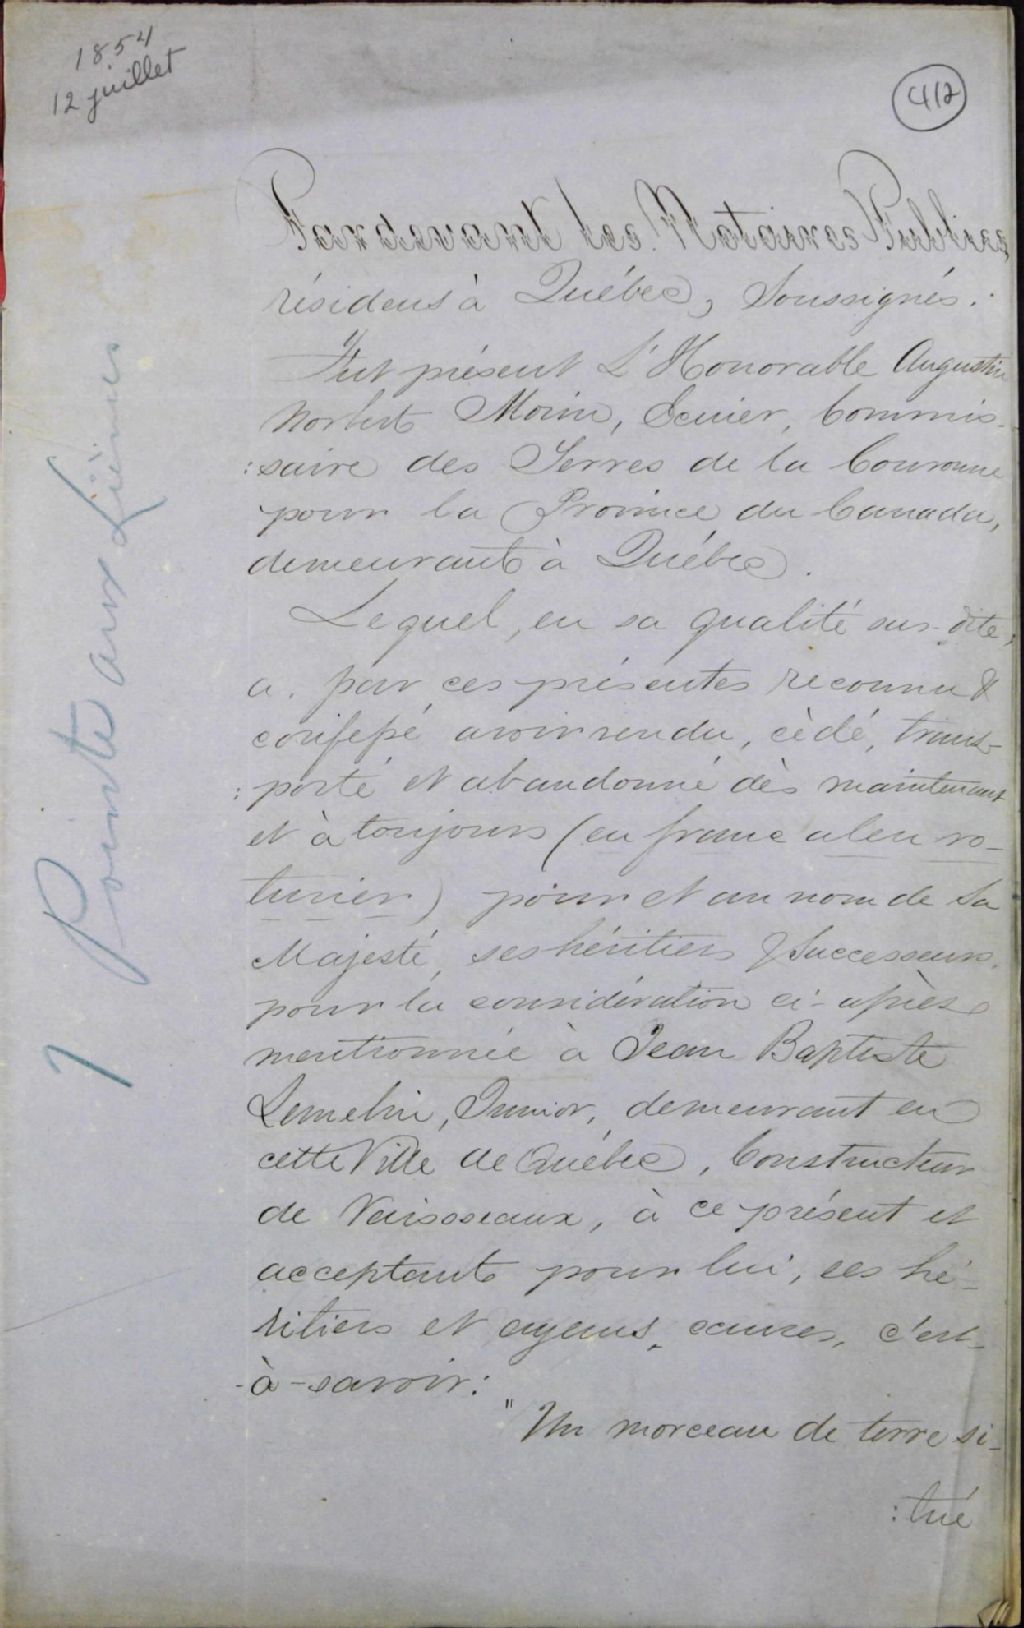 1854
12 juillet
412
Pardevant les Notaires Publics
résidens à Québec, Soussignés.
Fut présent L'Honorable Augustin
Norbert Morin, Ecuier, Commis-
:saire des Terres de la Couronne
pour la Province du Canada,
demeurant à Québec.
Lequel, en sa qualité sus-dite,
a par ces présentes reconnu &
confessé avoir vendu, cèdé, trans-
:porté et abandonné dès maintenant
et à toujours (en franc aleu ro-
turier) pour et au nom de Sa
Majesté, ses héritiers & Successeurs,
pour la considération ci-après
mentionnée à Jean Baptiste
Lemelin, Junior, demeurant en
cette Ville de Québec, Constructeur
de Vaisseaux, à ce présent et
acceptant pour lui, ses hé-
ritiers et ayans, causes, c'est-
-à-savoir:
"Un morceau de terre si-
:tué
1 Pointe aux Lièvres